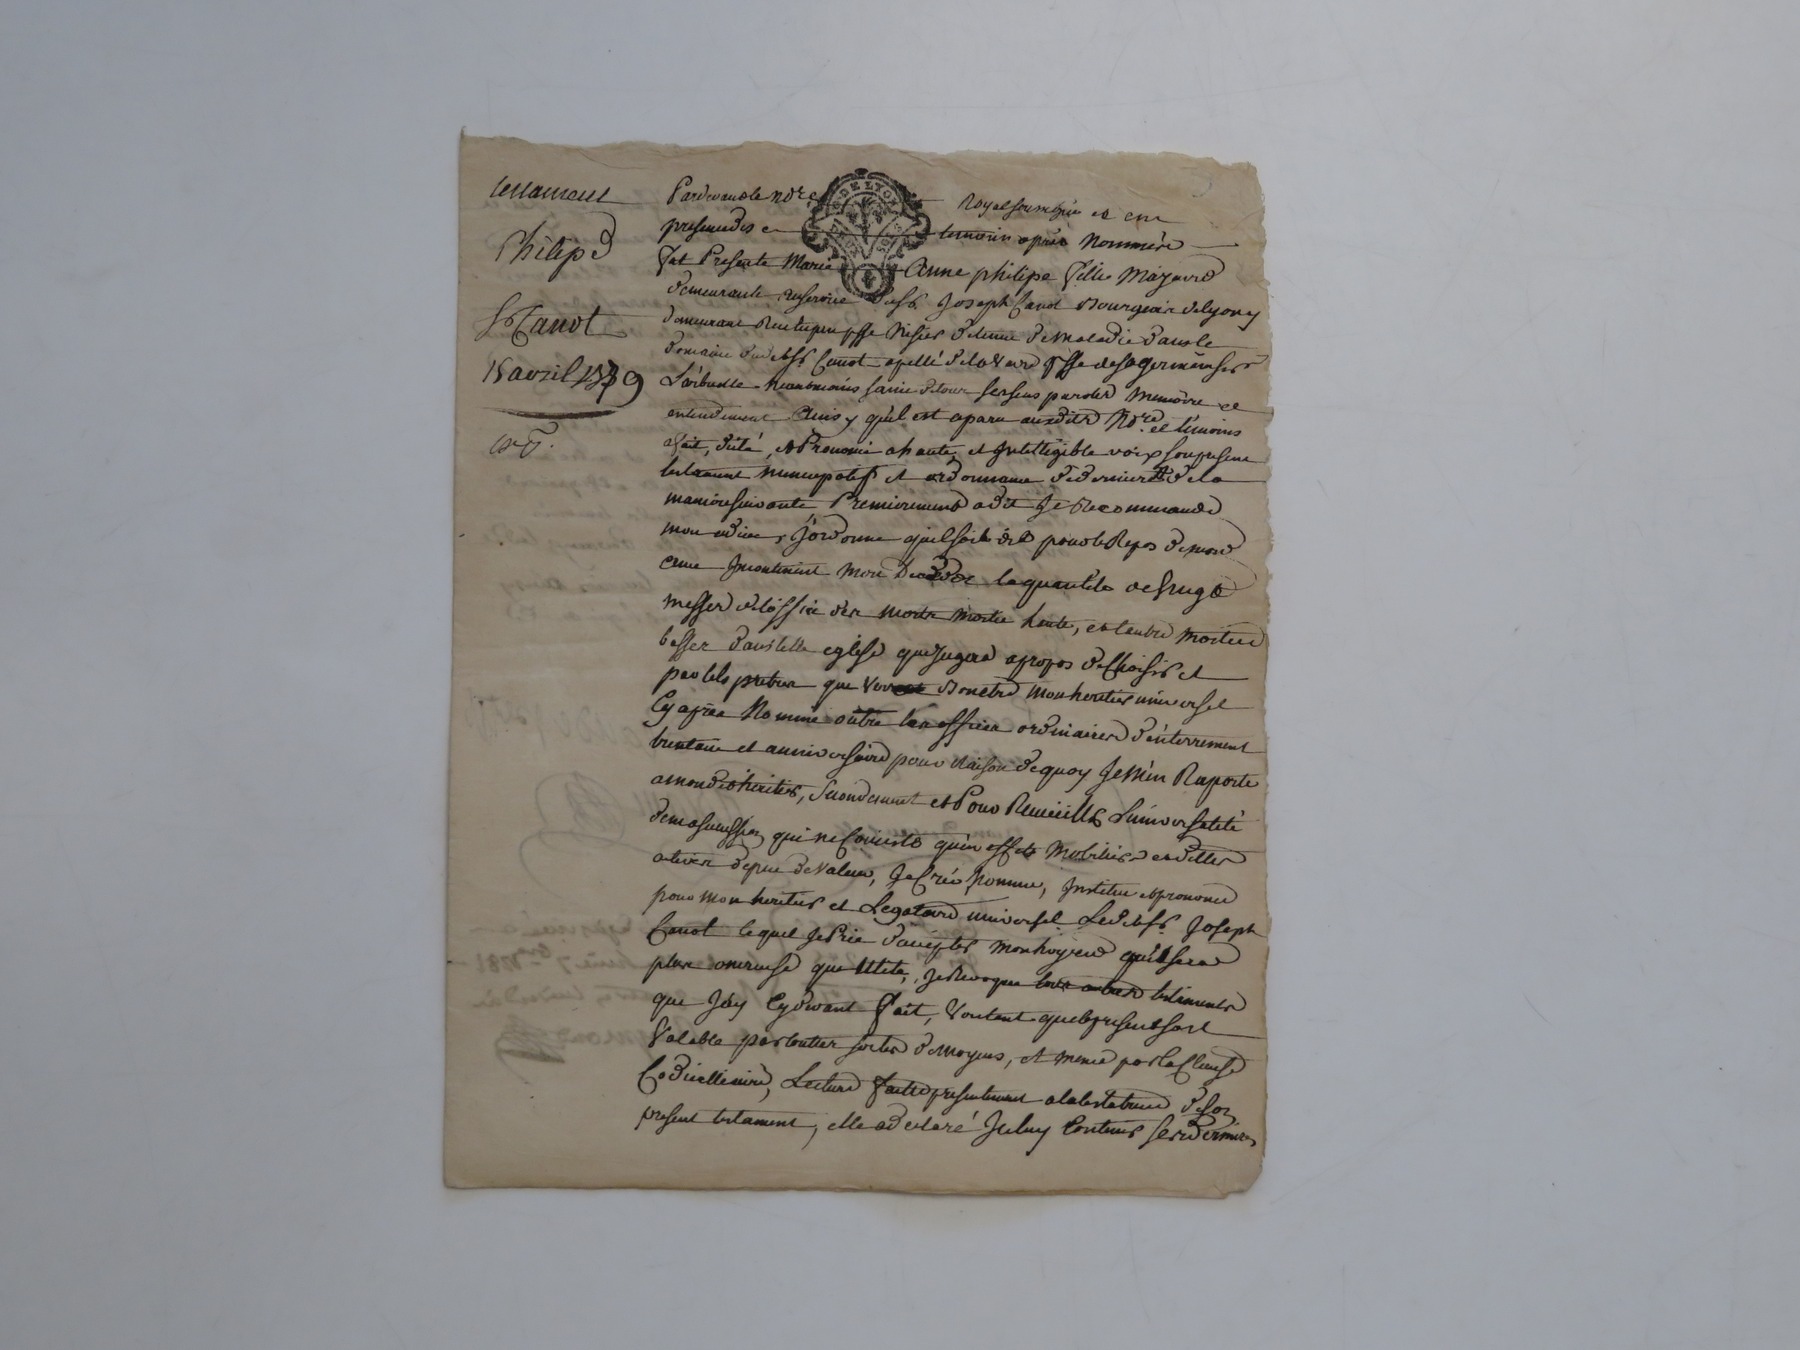 testament
Philipe
Sr Canot
15 avril 1779
Pardevant le Nore Royal soussigné et en
presence des temoins après Nommés
fut Presente Marie Anne philipe fille Majeure
demeurante en service du Sr Joseph Canot Bourgeois de Lyon y
demeurant detenue de Maladie dans le
domaine dudit Sr Canot apellé de la psse de St germain sur
L'arbresle neantmoins saine de tous ses sens paroles Memoire et
entendement Ainsy qu'il est aparu auxdits Nore et temoins
a fait, dicté, et Prononcé a haute et Intelligible voix son present
testament nuncupatif et ordonnance de derniere de la
maniere suivante Premierement a dit Je Recommande
mon a dieu, J'ordonne qu'il soit dit pour le Repos de mon
ame Incontinent Mon Decedz la quantité de vingt
messes de l'office des Morts Moitié haute, et l'autre Moitié
basses dans telle eglise que Jugera apropos de Choisir et
par tels pretres que Mon heritier universel
Cy après Nommé outre les offices ordinaires d'enterrement
trentaine et anniversaire pour Raison de quoy Je M'en Raporte
a mondit heritier, Secondement et Pour Receuillir L'universalité
de ma Succession qui ne Consiste qu'en effets Mobiliers et dettes
actives de peu de Valeur, Je Crée Nomme, Institue et prononce
pour Mon heritier et Legataire universel Ledit Sr Joseph
Canot lequel Je Prie d'accepter Mon hoyrie qui sera
plus onereuse que Utile, Je Revoque tous autres testaments
que J'ay Cy devant fait, Voulant que le present soit
Valable par toutes sortes de Moyens, et meme par la Clause
Codicillaire, Lecture faitte presentement a la testatrice de son
present testament, elle a declaré Iceluy Contenir ses dernieres